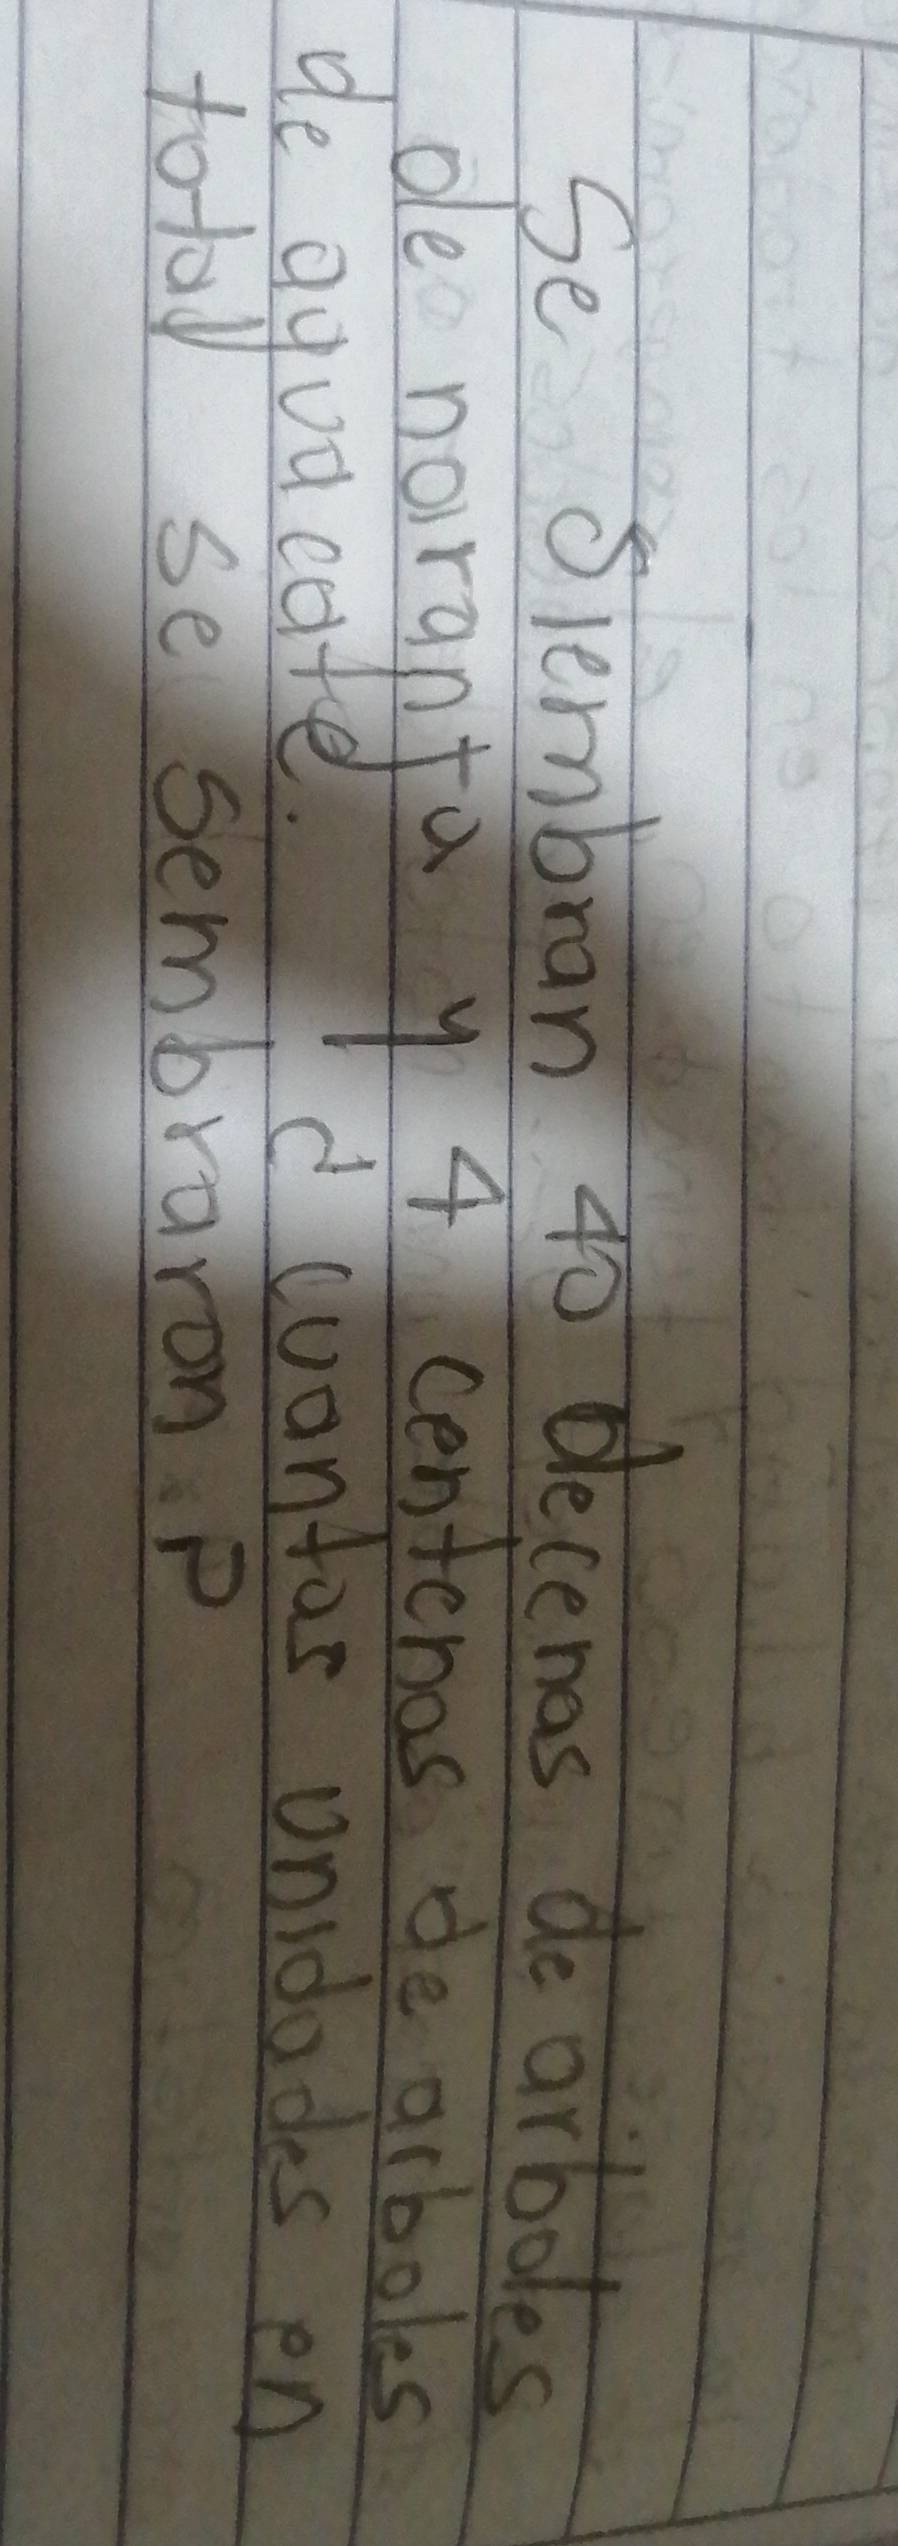 Se siembran 40 decenas de arboles
de naranja y 4 centenas de arboles
de aguacate. ¿ cuantas unidades en
total se sembraron ?